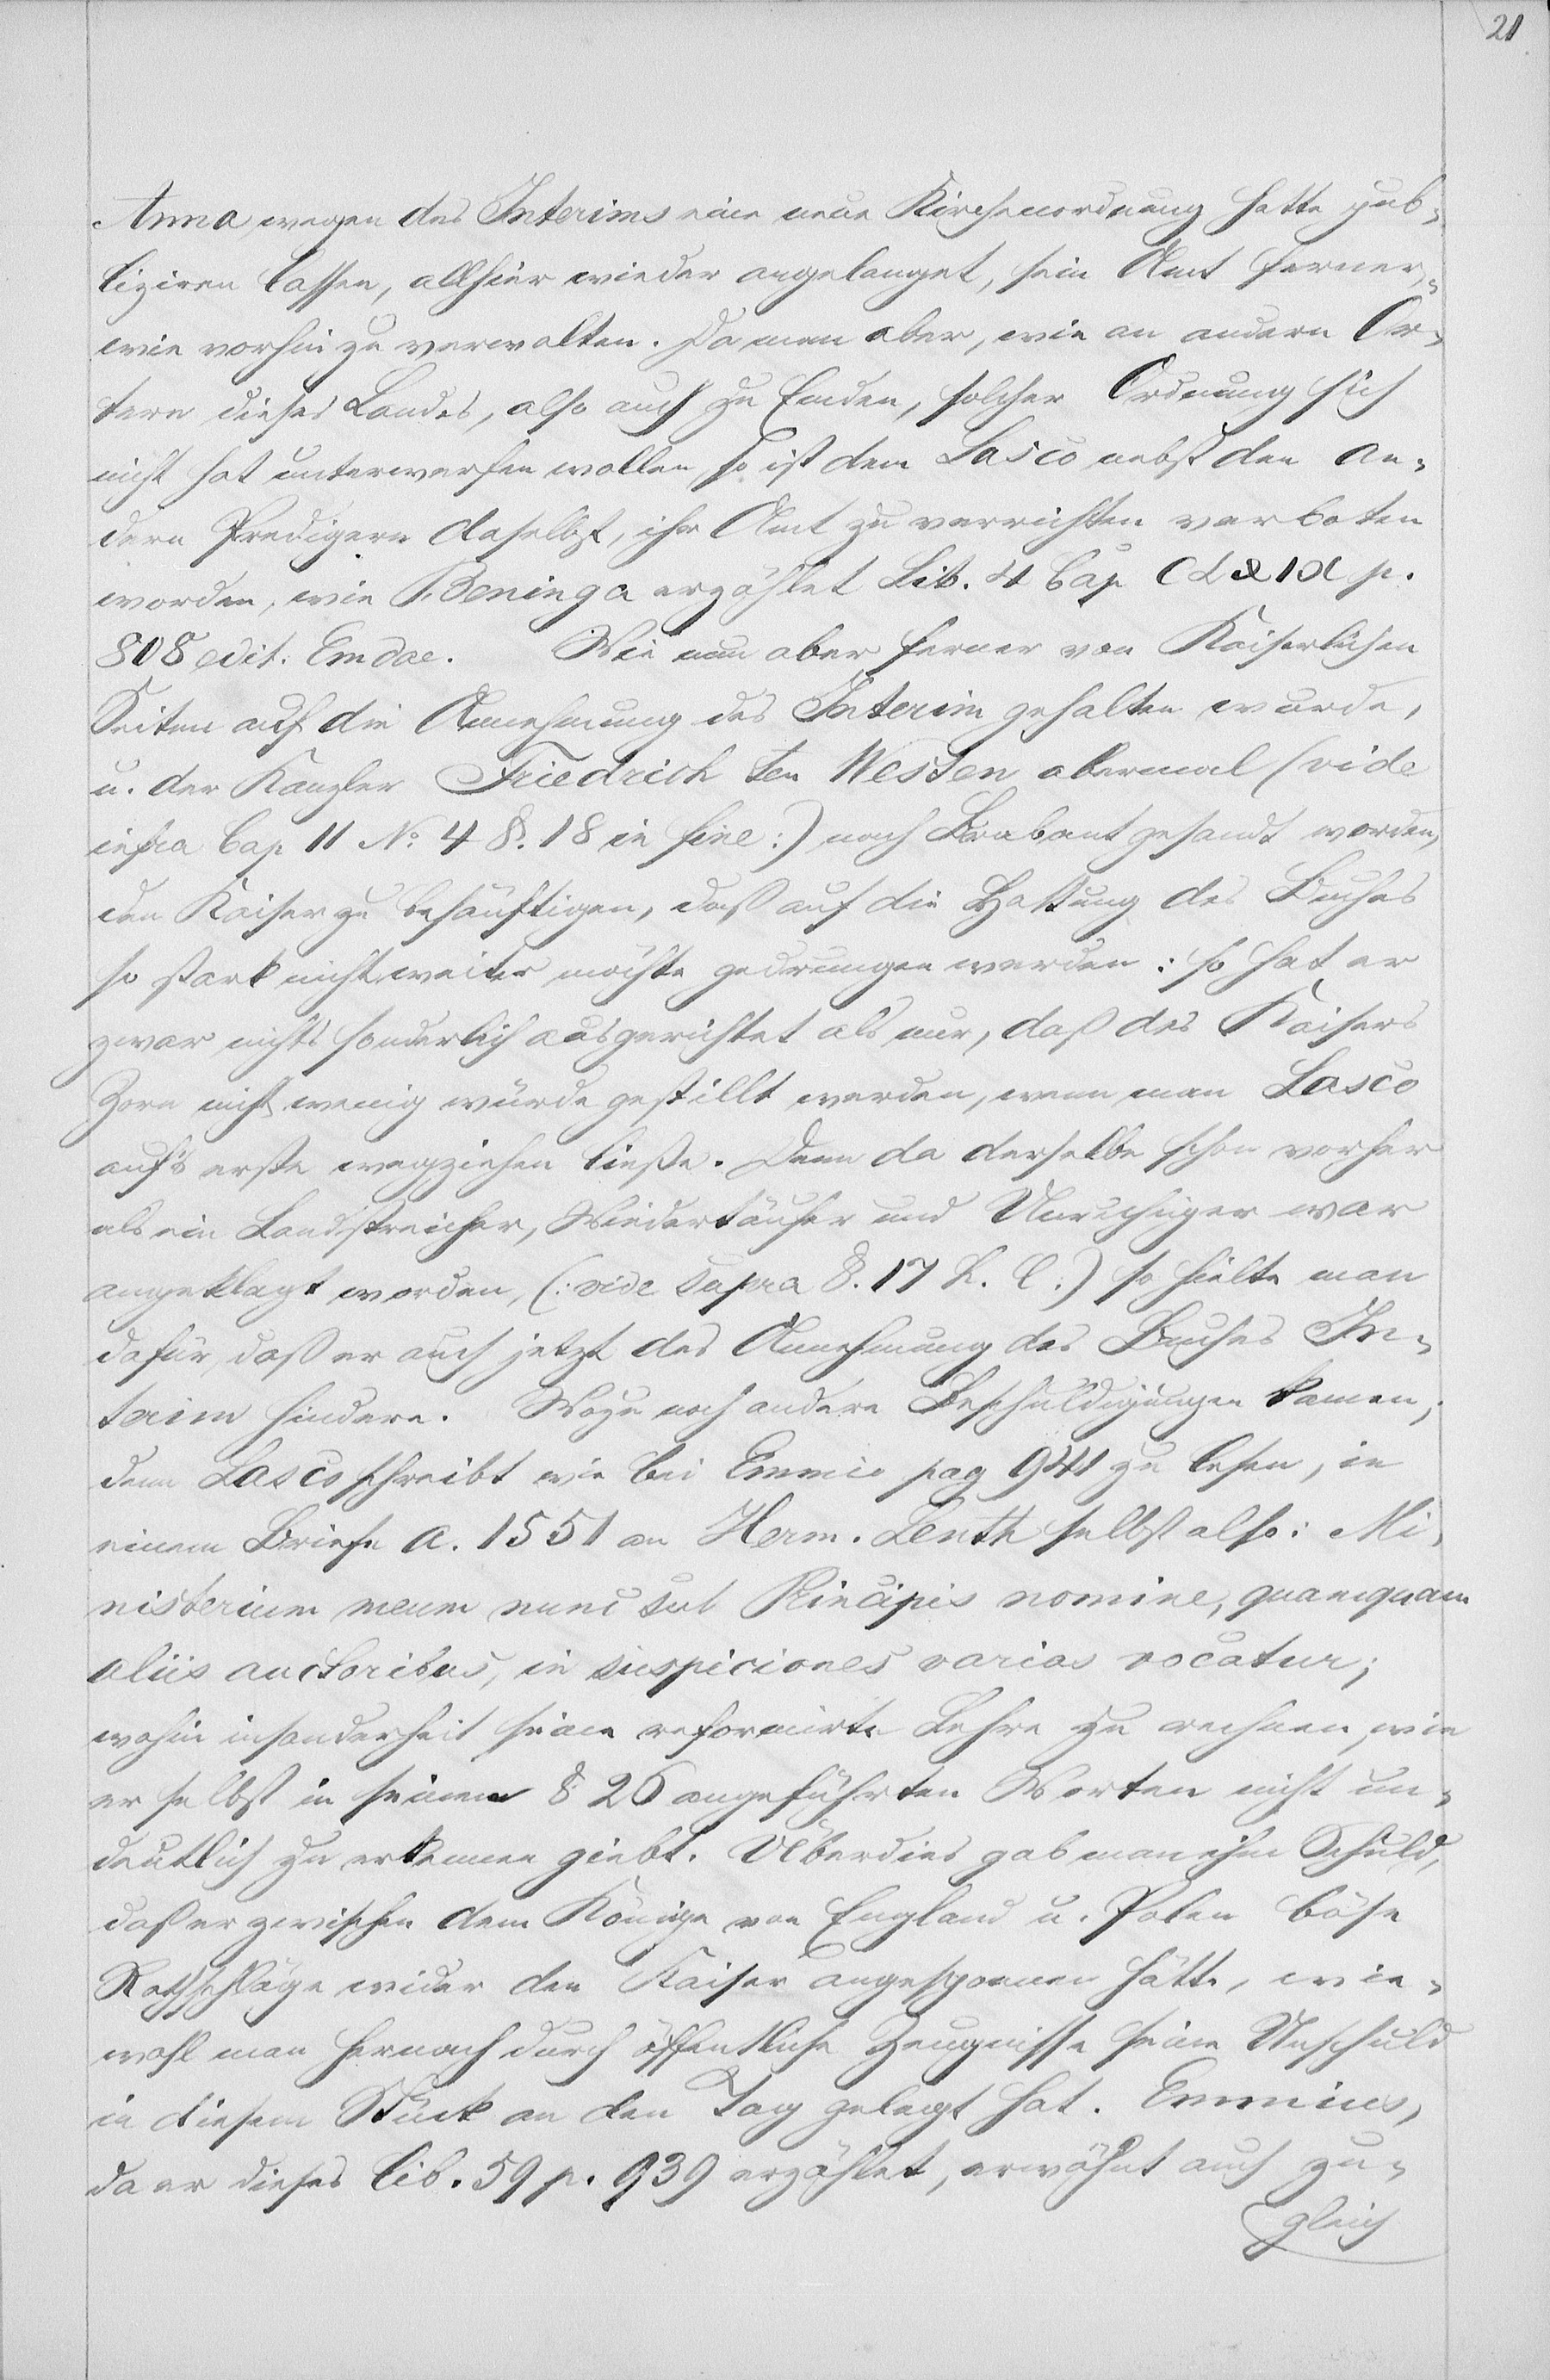 21
Anna wegen des Interims eine neue Kirchenordnung hatte pub-
liziren lassen, allhier wieder angelanget, sein Amt ferner,
wie vorhin zu verwalten. Da man aber, wie an andern Or-
tern dieses Landes, also auch zu Emden, solcher Ordnung sich
nicht hat unterwerfen wollen, so ist dem Lasco nebst den an-
dern Predigern daselbst, ihr Amt zu verrichten verboten
worden, wie Beninga erzählet Lib. 4 Cap p.
808 edit. Emdae. Wie nun aber ferner von Kaiserlichen
Seiten auf die Annehmung des Interim gehalten wurde,
u. der Kanzler Friedrich ten Westen abermal (vide
infra Cap 11 No. 4 §. 18 in fine:) nach Brabant gesandt worden,
den Kaiser zu besänftigen, daß auf die Haltung des Buches
so stark nicht weiter möchte gedrungen werden: so hat er
zwar nichts sonderlich ausgerichtet als nur, daß des Kaisers
Zorn nicht wenig würde gestillt werden, wenn man Lasco
auf's erste wegziehen ließe. Denn da derselbe schon vorher
als ein Landstreicher, Wiedertäufer und Unruhiger war
angeklagt worden, (: vide supra §. 17 h. c:) so hielte man
dafür, daß er auch jetzt des Annehmung des Buches In-
terim hindere. Wozu noch andere Beschuldigungen kamen,
denn Lasco schreibt wie bei Emmio pag 941 zu lesen, in
einem Briefe a. 1551 an Herm. Lenth selbst also: Mi-
nisterium meum nunc sub Principis nomine, quamquam
aliis auctoribus, in suspiciones varias vocatur;
wohin insonderheit seine reformirte Lehre zu rechnen, wie
er selbst in seinen § 26 angeführten Worten nicht un-
deutlich zu erkennen giebt. Überdies gab man ihm Schuld,
daß er zwischen dem Könige von England u. Polen böse
Rathschläge wider den Kaiser angesponnen hätte, wie-
wohl man hernach durch öffentliche Zeugnisse seine Unschuld
in diesem Stück an den Tag gelegt hat. Emmius,
da er dieses lib. 59 p. 939 erzählet, erwähnt auch zu-
gleich